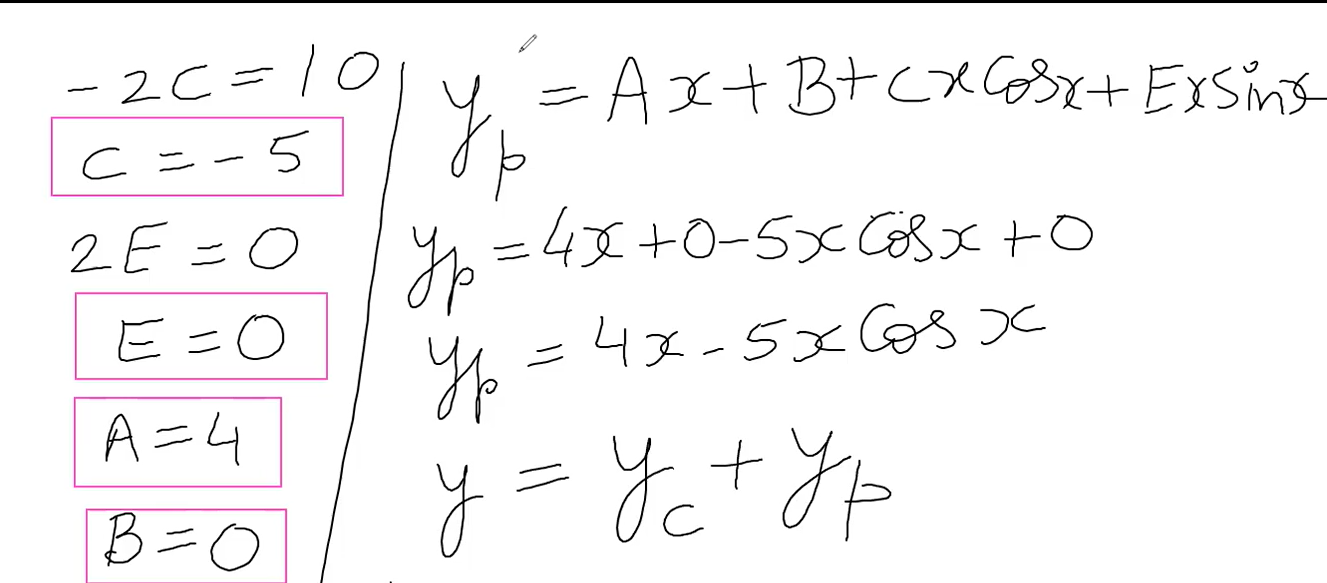 -2C = 10
C = -5
2E = 0
E = 0
A = 4
B = 0
y_p = Ax + B + Cx Cosx + Ex Sinx
y_p = 4x + 0 - 5x Cosx + 0
y_p = 4x - 5x Cos x
y = y_c + y_p